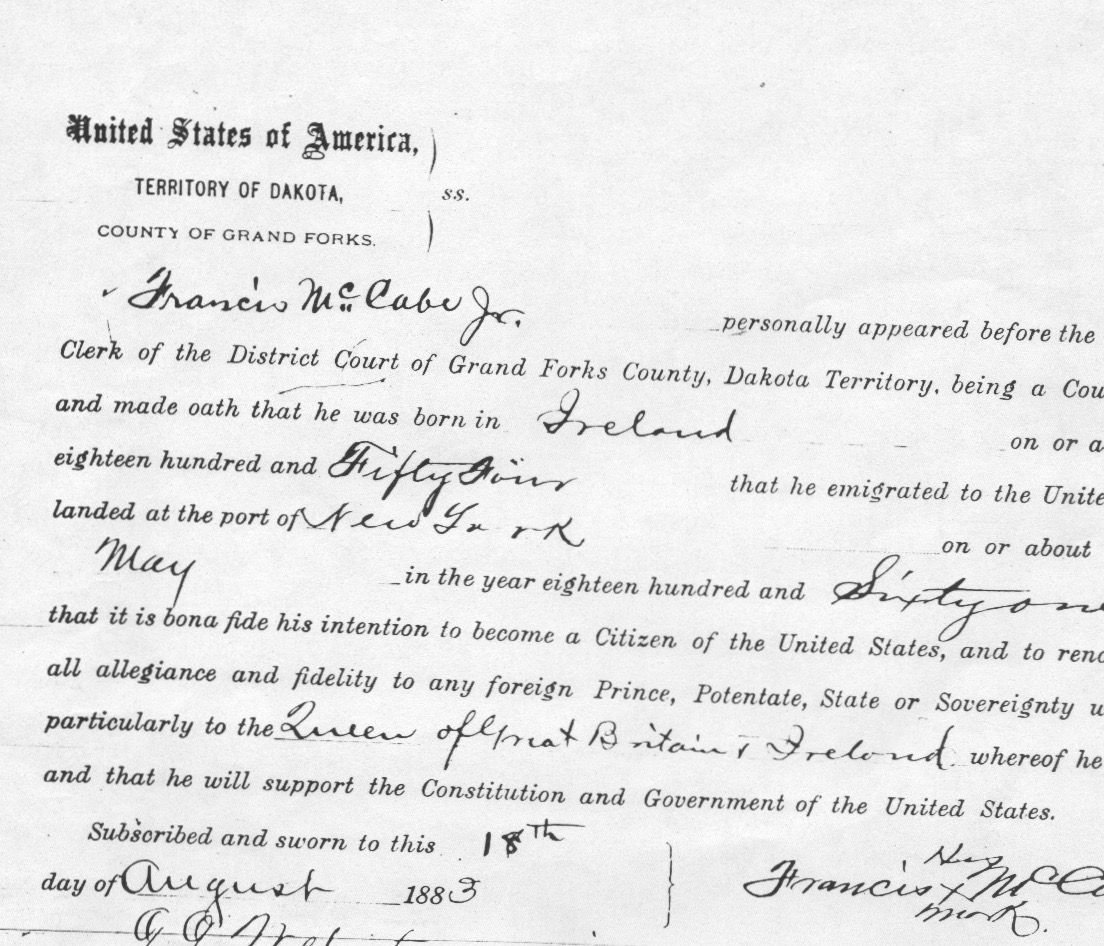 United States of America,
TERRITORY OF DAKOTA, ss.
COUNTY OF GRAND FORKS.
Francis McCabe Jr. personally appeared before the
Clerk of the District Court of Grand Forks County, Dakota Territory, being a Cou
and made oath that he was born in Ireland on or a
eighteen hundred and Fifty Four that he emigrated to the Unite
landed at the port of New York on or about
May in the year eighteen hundred and Sixty one
that it is bona fide his intention to become a Citizen of the United States, and to reno
all allegiance and fidelity to any foreign Prince, Potentate, State or Sovereignty w
particularly to the Queen of Great Britain & Ireland whereof he
and that he will support the Constitution and Government of the United States.
Subscribed and sworn to this 18th
day of August 1883
His
Francis x McCa
mark.